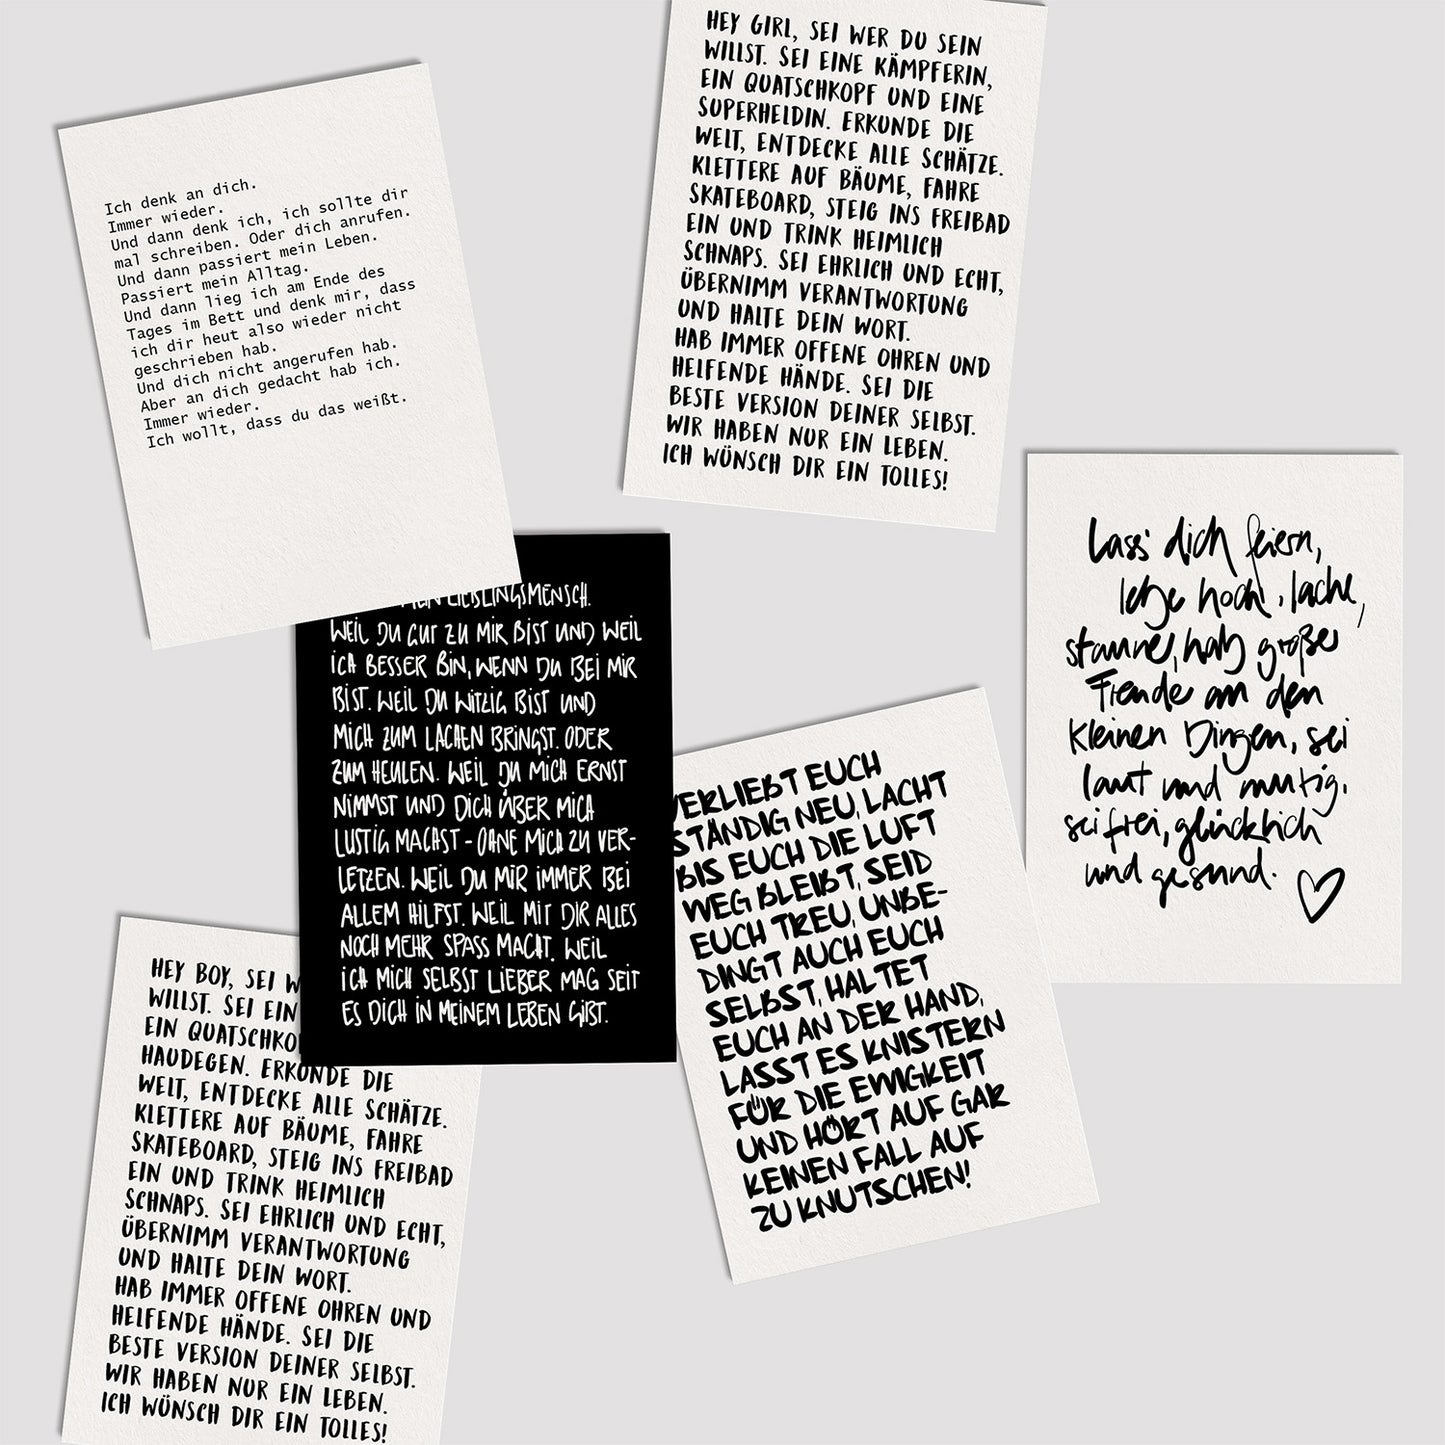 Ich denk an dich.
Immer wieder.
Und dann denk ich, ich sollte dir
mal schreiben. Oder dich anrufen.
Und dann passiert mein Leben.
Passiert mein Alltag.
Und dann lieg ich am Ende des
Tages im Bett und denk mir, dass
ich dir heut also wieder nicht
geschrieben hab.
Und dich nicht angerufen hab.
Aber an dich gedacht hab ich.
Immer wieder.
Ich wollt, dass du das weißt.
HEY GIRL, SEI WER DU SEIN
WILLST. SEI EINE KÄMPFERIN,
EIN QUATSCHKOPF UND EINE
SUPERHELDIN. ERKUNDE DIE
WELT, ENTDECKE ALLE SCHÄTZE.
KLETTERE AUF BÄUME, FAHRE
SKATEBOARD, STEIG INS FREIBAD
EIN UND TRINK HEIMLICH
SCHNAPS. SEI EHRLICH UND ECHT,
ÜBERNIMM VERANTWORTUNG
UND HALTE DEIN WORT.
HAB IMMER OFFENE OHREN UND
HELFENDE HÄNDE. SEI DIE
BESTE VERSION DEINER SELBST.
WIR HABEN NUR EIN LEBEN.
ICH WÜNSCH DIR EIN TOLLES!
Lass dich feiern,
lebe hoch, lache,
staune, hab große
Freude an den
kleinen Dingen, sei
laut und mutig,
sei frei, glücklich
und gesund.
LIEBLINGSMENSCH.
WEIL DU GUT ZU MIR BIST UND WEIL
ICH BESSER BIN, WENN DU BEI MIR
BIST. WEIL DU WITZIG BIST UND
MICH ZUM LACHEN BRINGST. ODER
ZUM HEULEN. WEIL DU MICH ERNST
NIMMST UND DICH ÜBER MICH
LUSTIG MACHST - OHNE MICH ZU VER-
LETZEN. WEIL DU MIR IMMER BEI
ALLEM HILFST. WEIL MIT DIR ALLES
NOCH MEHR SPASS MACHT. WEIL
ICH MICH SELBST LIEBER MAG SEIT
ES DICH IN MEINEM LEBEN GIBT.
VERLIEBT EUCH
STÄNDIG NEU, LACHT
BIS EUCH DIE LUFT
WEG BLEIBT, SEID
EUCH TREU, UNBE-
DINGT AUCH EUCH
SELBST, HALTET
EUCH AN DER HAND,
LASST ES KNISTERN
FÜR DIE EWIGKEIT
UND HÖRT AUF GAR
KEINEN FALL AUF
ZU KNUTSCHEN!
HEY BOY, SEI W
WILLST. SEI EIN
EIN QUATSCHKO
HAUDEGEN. ERKUNDE DIE
WELT, ENTDECKE ALLE SCHÄTZE.
KLETTERE AUF BÄUME, FAHRE
SKATEBOARD, STEIG INS FREIBAD
EIN UND TRINK HEIMLICH
SCHNAPS. SEI EHRLICH UND ECHT,
ÜBERNIMM VERANTWORTUNG
UND HALTE DEIN WORT.
HAB IMMER OFFENE OHREN UND
HELFENDE HÄNDE. SEI DIE
BESTE VERSION DEINER SELBST.
WIR HABEN NUR EIN LEBEN.
ICH WÜNSCH DIR EIN TOLLES!